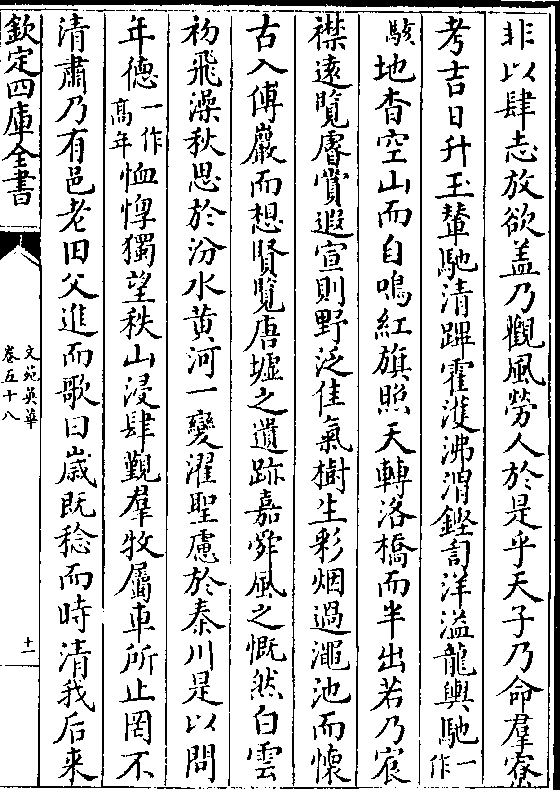 非以肆志放欲盖乃觀風勞人於是乎天子乃命羣寮
考吉日升玉輦馳清蹕霍濩沸渭鏗訇洋溢龍輿馳一作
駭地杳空山而自鳴紅旗照天轉洛橋而半出若乃宸
襟遠覽睿賞遐宣則野泛佳氣樹生彩烟過澠池而懐
古入傅巖而想賢覽唐墟之遺跡嘉舜風之慨然白雲
初飛澡秋思於汾水黄河一變濯聖慮於秦川是以問
年德一作高年恤惸獨望秩山浸肆覲羣牧屬車所止罔不
清肅乃有邑老田父進而歌曰嵗既稔而時清我后来
欽定四庫全書
文苑英華
卷五十八
十一